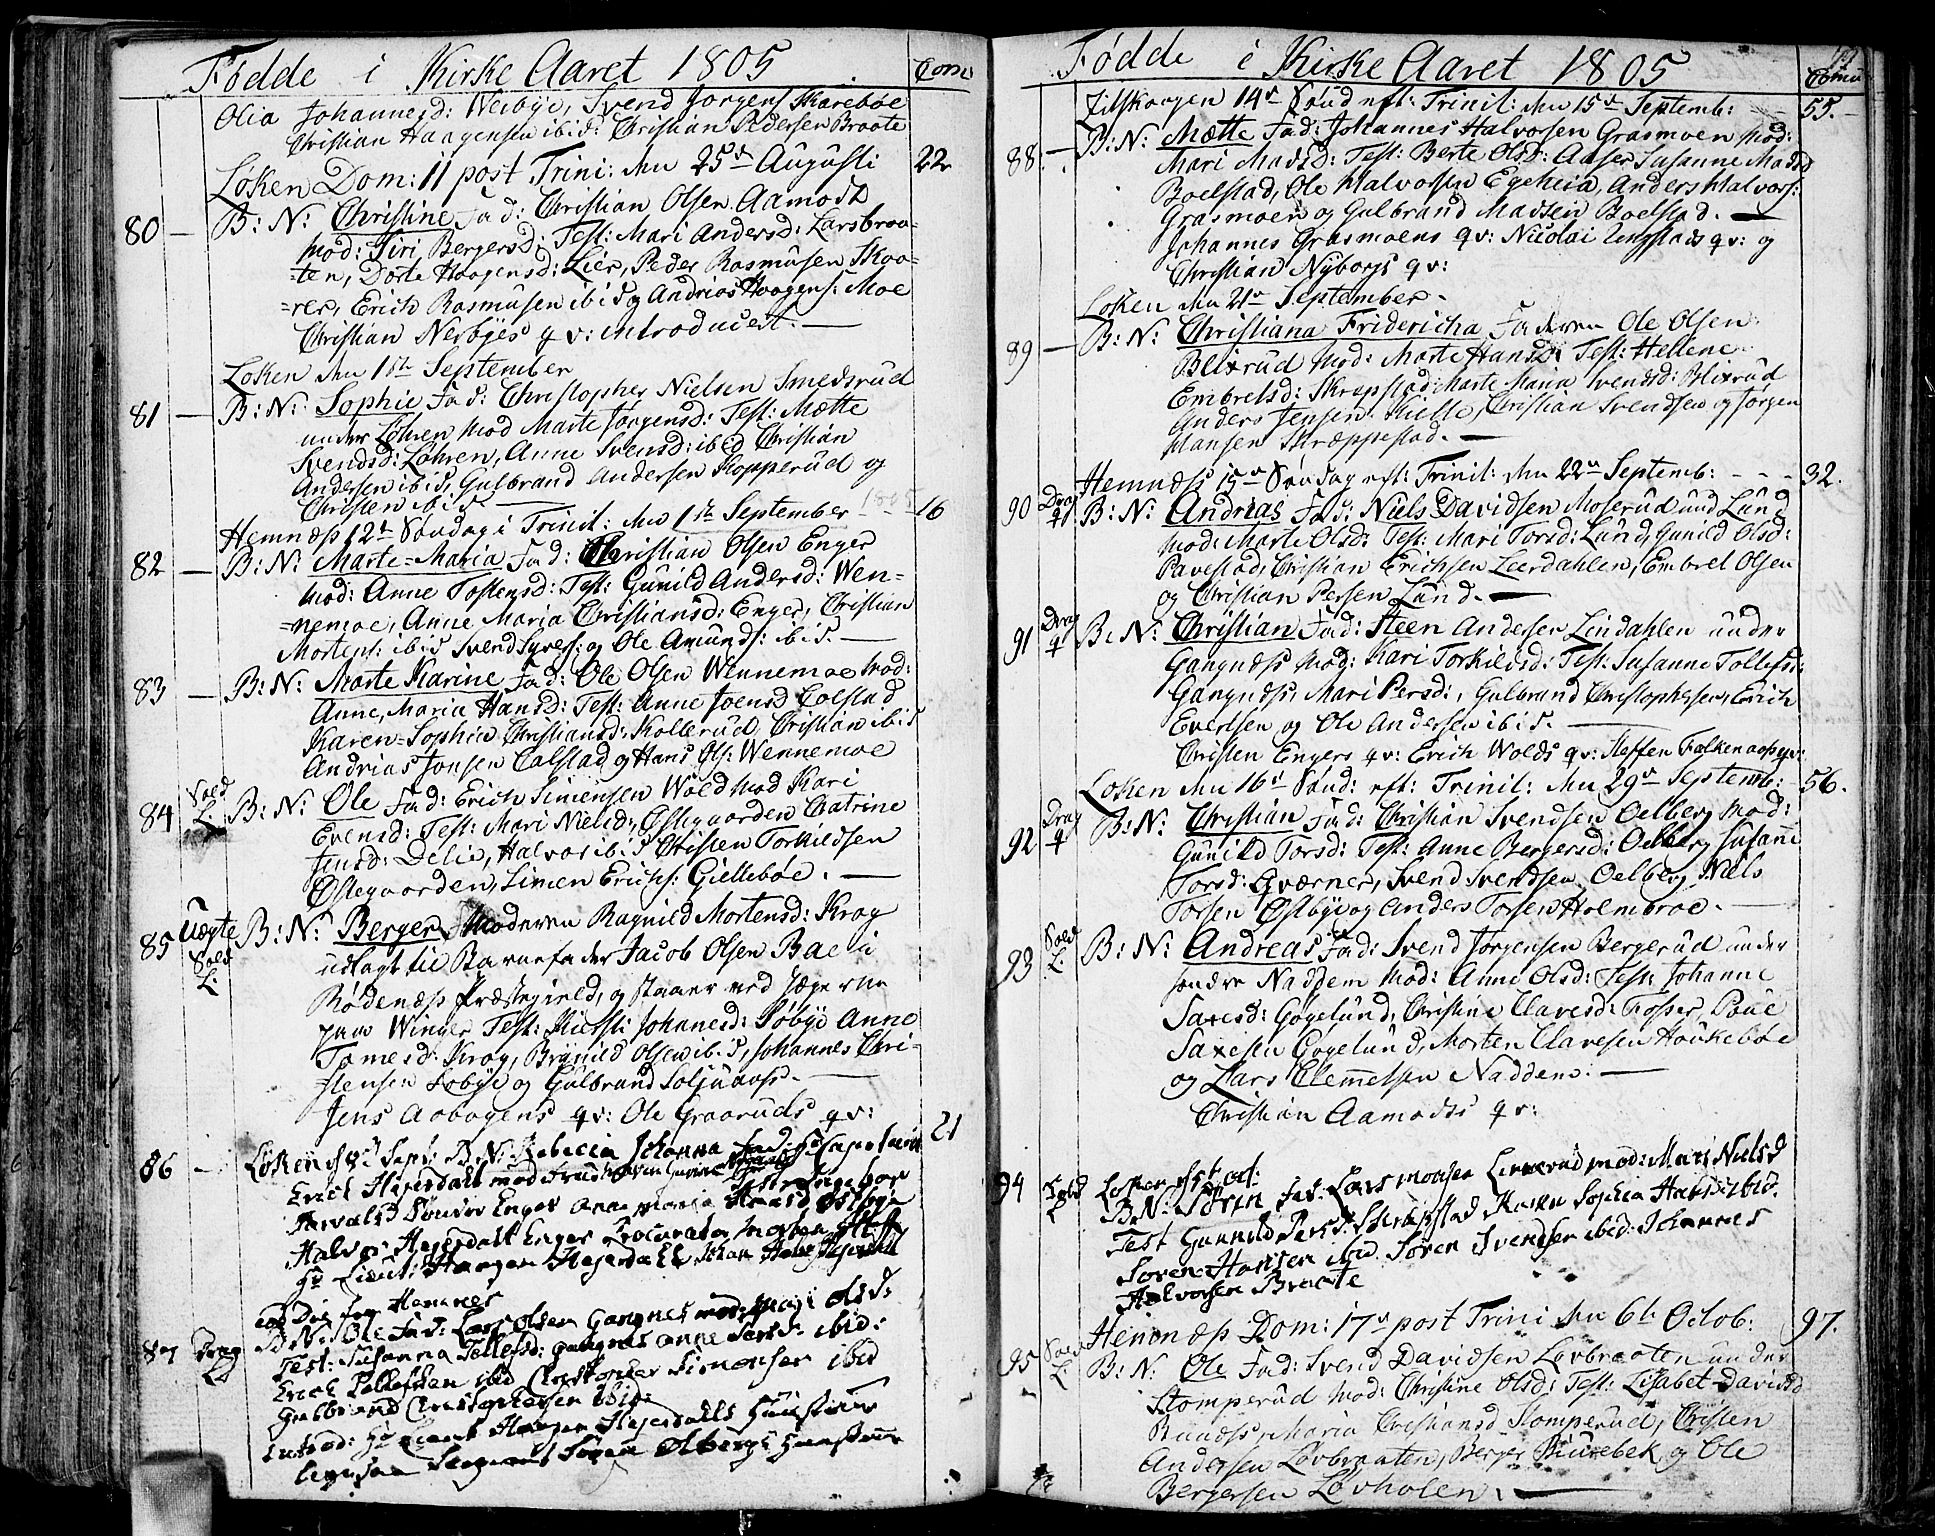 Fødde i Kirke Aaret 1805
Olia Johannesd: Weibye, Svend Jørgens Skarebøe
Christian Haagensen ibid: Christian Pedersen Braate
Løken Dom: 11 post Trini: den 25de Augusti 22
80 — B: N: Christine Fad: Christian Olsen Aamodt
Mod: Siri Bergersd: Test: Mari Andersd: Larsbraa-
-ten, Dorte Haagensd: Lier, Peder Rasmusen Skaa-
-rer, Erich Rasmusen ibid og Andrias Haagens: Moe
Christian Nerbyes qv: introducert. —
Løken den 1ste September
81 — B: N: Sophie Fad: Christopher Nielsen Smedsrud
under Løhren Mod Marte Jørgensd: Test: Mætte
Svendsd: Løhren, Anne Svensd: ibid Christian
Andersen ibid, Gulbrand Andersen Kopperud og
Christen ibid. —
Hemnæs 12te Søndag i Trinit: den 1ste September 1805 16
82 — B: N: Marte-Maria Fad: Christian Olsen Enger
Mod: Anne Tostensd: Test: Gunild Andersd: Wen-
-nemoe, Anne Maria Christiansd: Enger, Christian
Mortens: ibid Svend Syvers: og Ole Amunds: ibid. —
83 — B: N: Marte Karine Fad: Ole Olsen Wennemoe Mod:
Anne Maria Hansd: Test: Anne Joensd Colstad
Karen-Sophia Christiansd: Kollerud, Christian ibid
Andrias Jonsen Calstad og Hans Ols: Wennemoe
84 Sold L. B: N: Ole Fad: Erich Simensen Wold Mod Kari
Evensd: Test: Mari Nielsd: Østegaarden Chatrine
Jensd: Delie, Halvor ibid Christen Torkildsen
Østegaarden, Simen Erichs: Giellebøe. —
85 Uægte Sold L. B: N: Berger Moderen Ragnild Mortensd: Krog
udlagt til Barnefader Jacob Olsen Bae i
Rødenæs Præstegield, og staaer ved Jægerne
paa Winger Test: Kiersti Johanesd: Søbye Anne
Tomesd: Krog, Brynild Olsen ibid, Johannes Chri-
stensen Søbye og Gulbrand Soljuaas. —
Jens Aabogens qv: Ole Graaruds qv:
86 — Løken d 8de Sept: B: N: Rebecia Johanna Fad: Hr Capelain 21
Erick Hejerdalt mod Frue
Halvor Hejerdalt Enger Procurator Morten
Hr Lieut: Haagen Hejerdalt
eod Die for Hemnes
87 Drag B: N: Ole Fad: Lars Olsen Gangnes mod: Mari Olsd:
Test: Susanna Tollefsd: Gangnes Anne Larsd: ibid:
Erick Tollefsen ibid Christopher Simonsen ibid
Gulbrand Christophersen ibid:
Introd: Hr Lieut Haagen Hejerdalls Hunstrue
Sergeant Søren Olbergs Hunstrue
Fødde i Kirke Aaret 1805
Zitskougen 14de Sønd eft: Trinit: den 15de Septemb: — 55. —
88. — B: N: Mætte Fad: Johannes Halvorsen Grasmoen Mod:
Mari Madsd: Test: Berte Olsd: Aaser Susanne Madsd
Boelstad, Ole Halvorsen Egeheia, Anders Halvors:
Grasmoen og Gulbrand Madsen Boelstad. —
Johannes Grasmoens qv: Nicolai Ungstads qv: og
Christian Nyborgs qv:
Løken den 21de September.
89 — B: N: Christiana Fridericha Faderen Ole Olsen
Blixrud Mod: Marte Hansd: Test: Hellene
Embretsd: Skrepstad: Marte Maria Svendsd: Blixrud
Anders Jensen Kielle, Christian Svendsen og Jørgen
Hansen Skræppestad. —
Hemnæs 15de Søndag eft: Trinit: den 22de Septemb: - - - 32.
90 Drag B: N: Andrias Fad: Niels Davidsen Moserud und Lund
Mod: Marte Olsd: Test: Mari Torsd: Lund, Gunild Olsd:
Pavestad, Christian Erichsen Leerdahlen, Embret Olsen
og Christian Persen Lund. —
91 Drag B: N: Christian Fad: Steen Andersen Lindahlen under
Gangnæss Mod: Kari Torkildsd: Test: Susanne Tollefsd:
Gangnæss, Mari Persd:, Gulbrand Christophersen, Erich
Evertsen og Ole Andersen ibid. —
Christen Engers qv: Erich Wolds qv: Steffen Falkenaas qv:
Løken den 16de Sønd: eft: Trinit: den 29de Septemb: 56.
92 Drag B: N: Christian Fad: Christian Svendsen Oelberg Mod:
Gunild Torsd: Test: Anne Bergersd: Oelberg Susanne
Torsd: Qværner, Svend Svendsen Oelberg, Niels
Torsen Østbye og Anders Torsen Holmbroe. —
93 Sold L. B: N: Andreas Fad: Svend Jørgensen Bergerud under
søndre Naddem Mod: Anne Olsd: Test: Johanne
Saxesd: Gøgelund, Christine Clavesd: Fosser, Poue
Saxesen Gøgelund, Morten Clavesen Houkebøe
og Lars Clemetsen Naddem: —
Christian Aamodts qv:
94 Sold L Løken d 5 Oct:
B: N: Sørin Fad: Lars Monsen Linnerud mod: Mari Nielsd
Test Gunnild Persd: Skrepstad Karen Sophia Hansd: ibid.
Søren Hansen ibid Søren Svendsen ibid: Johannes
Halvorsen Braate
Hemnæs Dom: 17de post Trini den 6te Octob: 97.
95 Sold L. B: N: Ole Fad: Svend Davidsen Løvbraaten under
Stomperud Mod: Christine Olsd: Test: Lisabet Davidsd
Bundss, Maria Christiansd Stomperud, Christen
Andersen Løvbraaten, Berger Biurebek, og Ole
Bergersen Løvholen. —